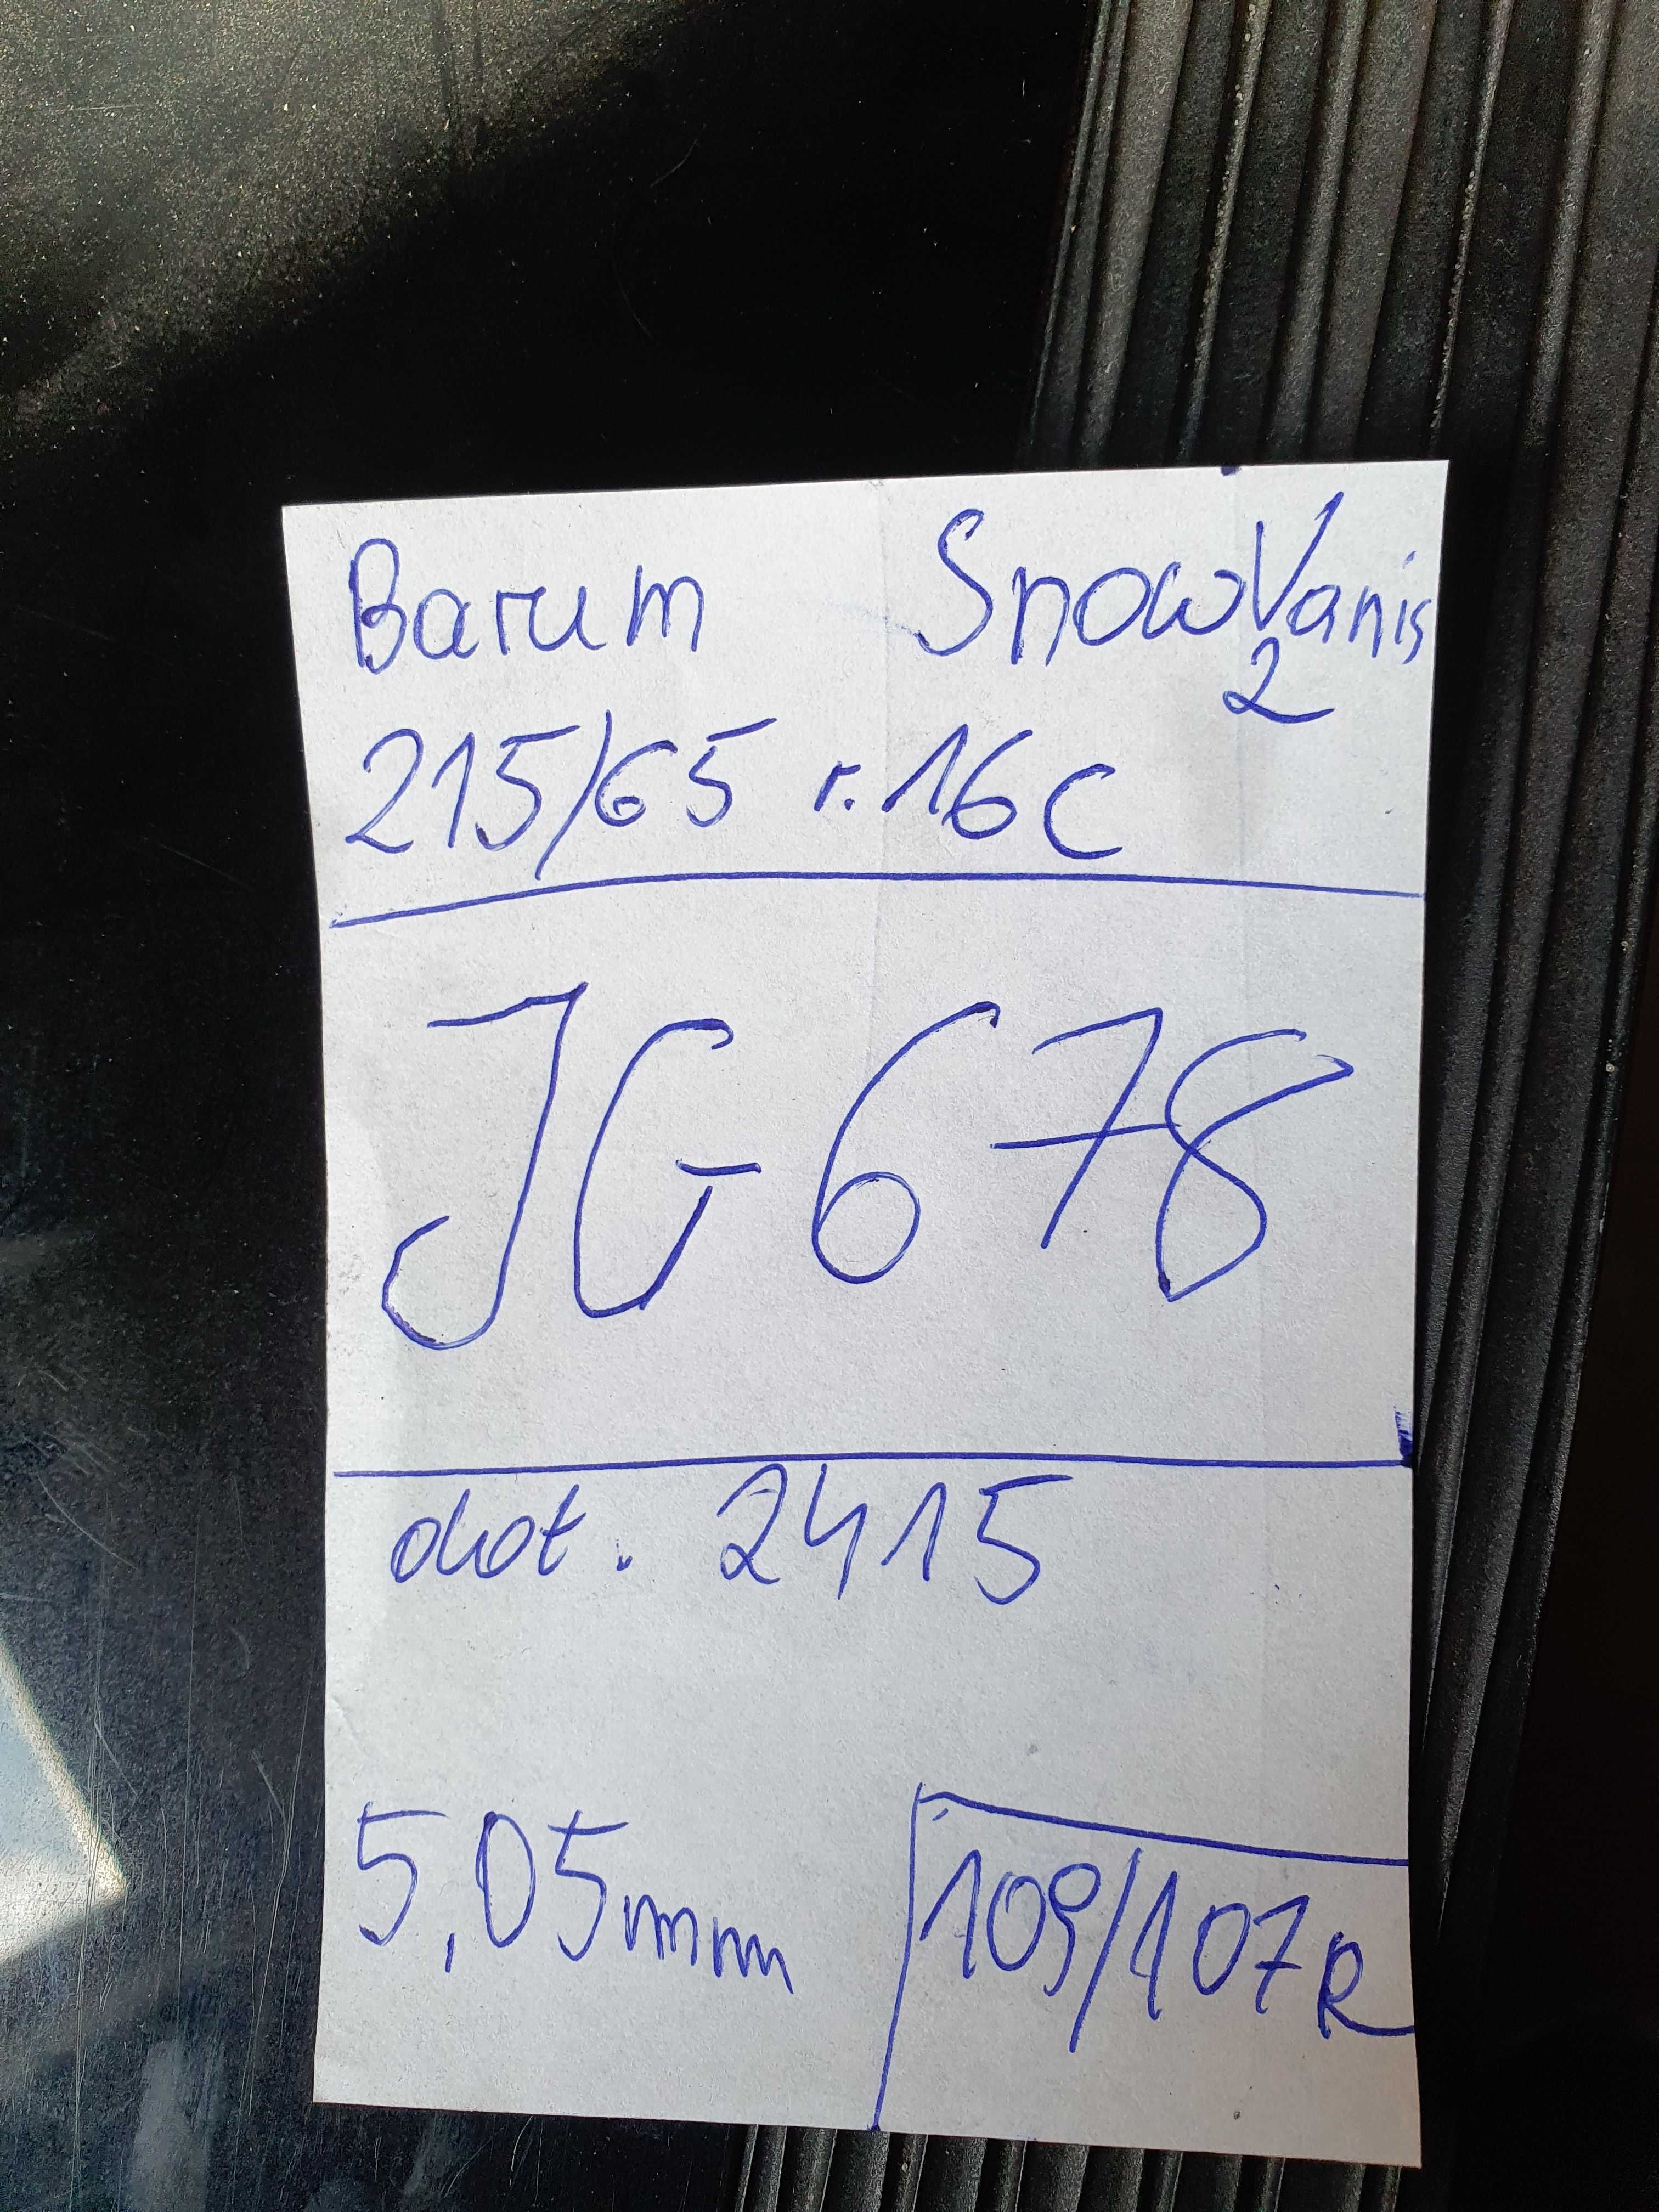 Barum SnowVanis
2
215/65 r.16C
JG 678
dot. 2415
5,05mm 109/107R